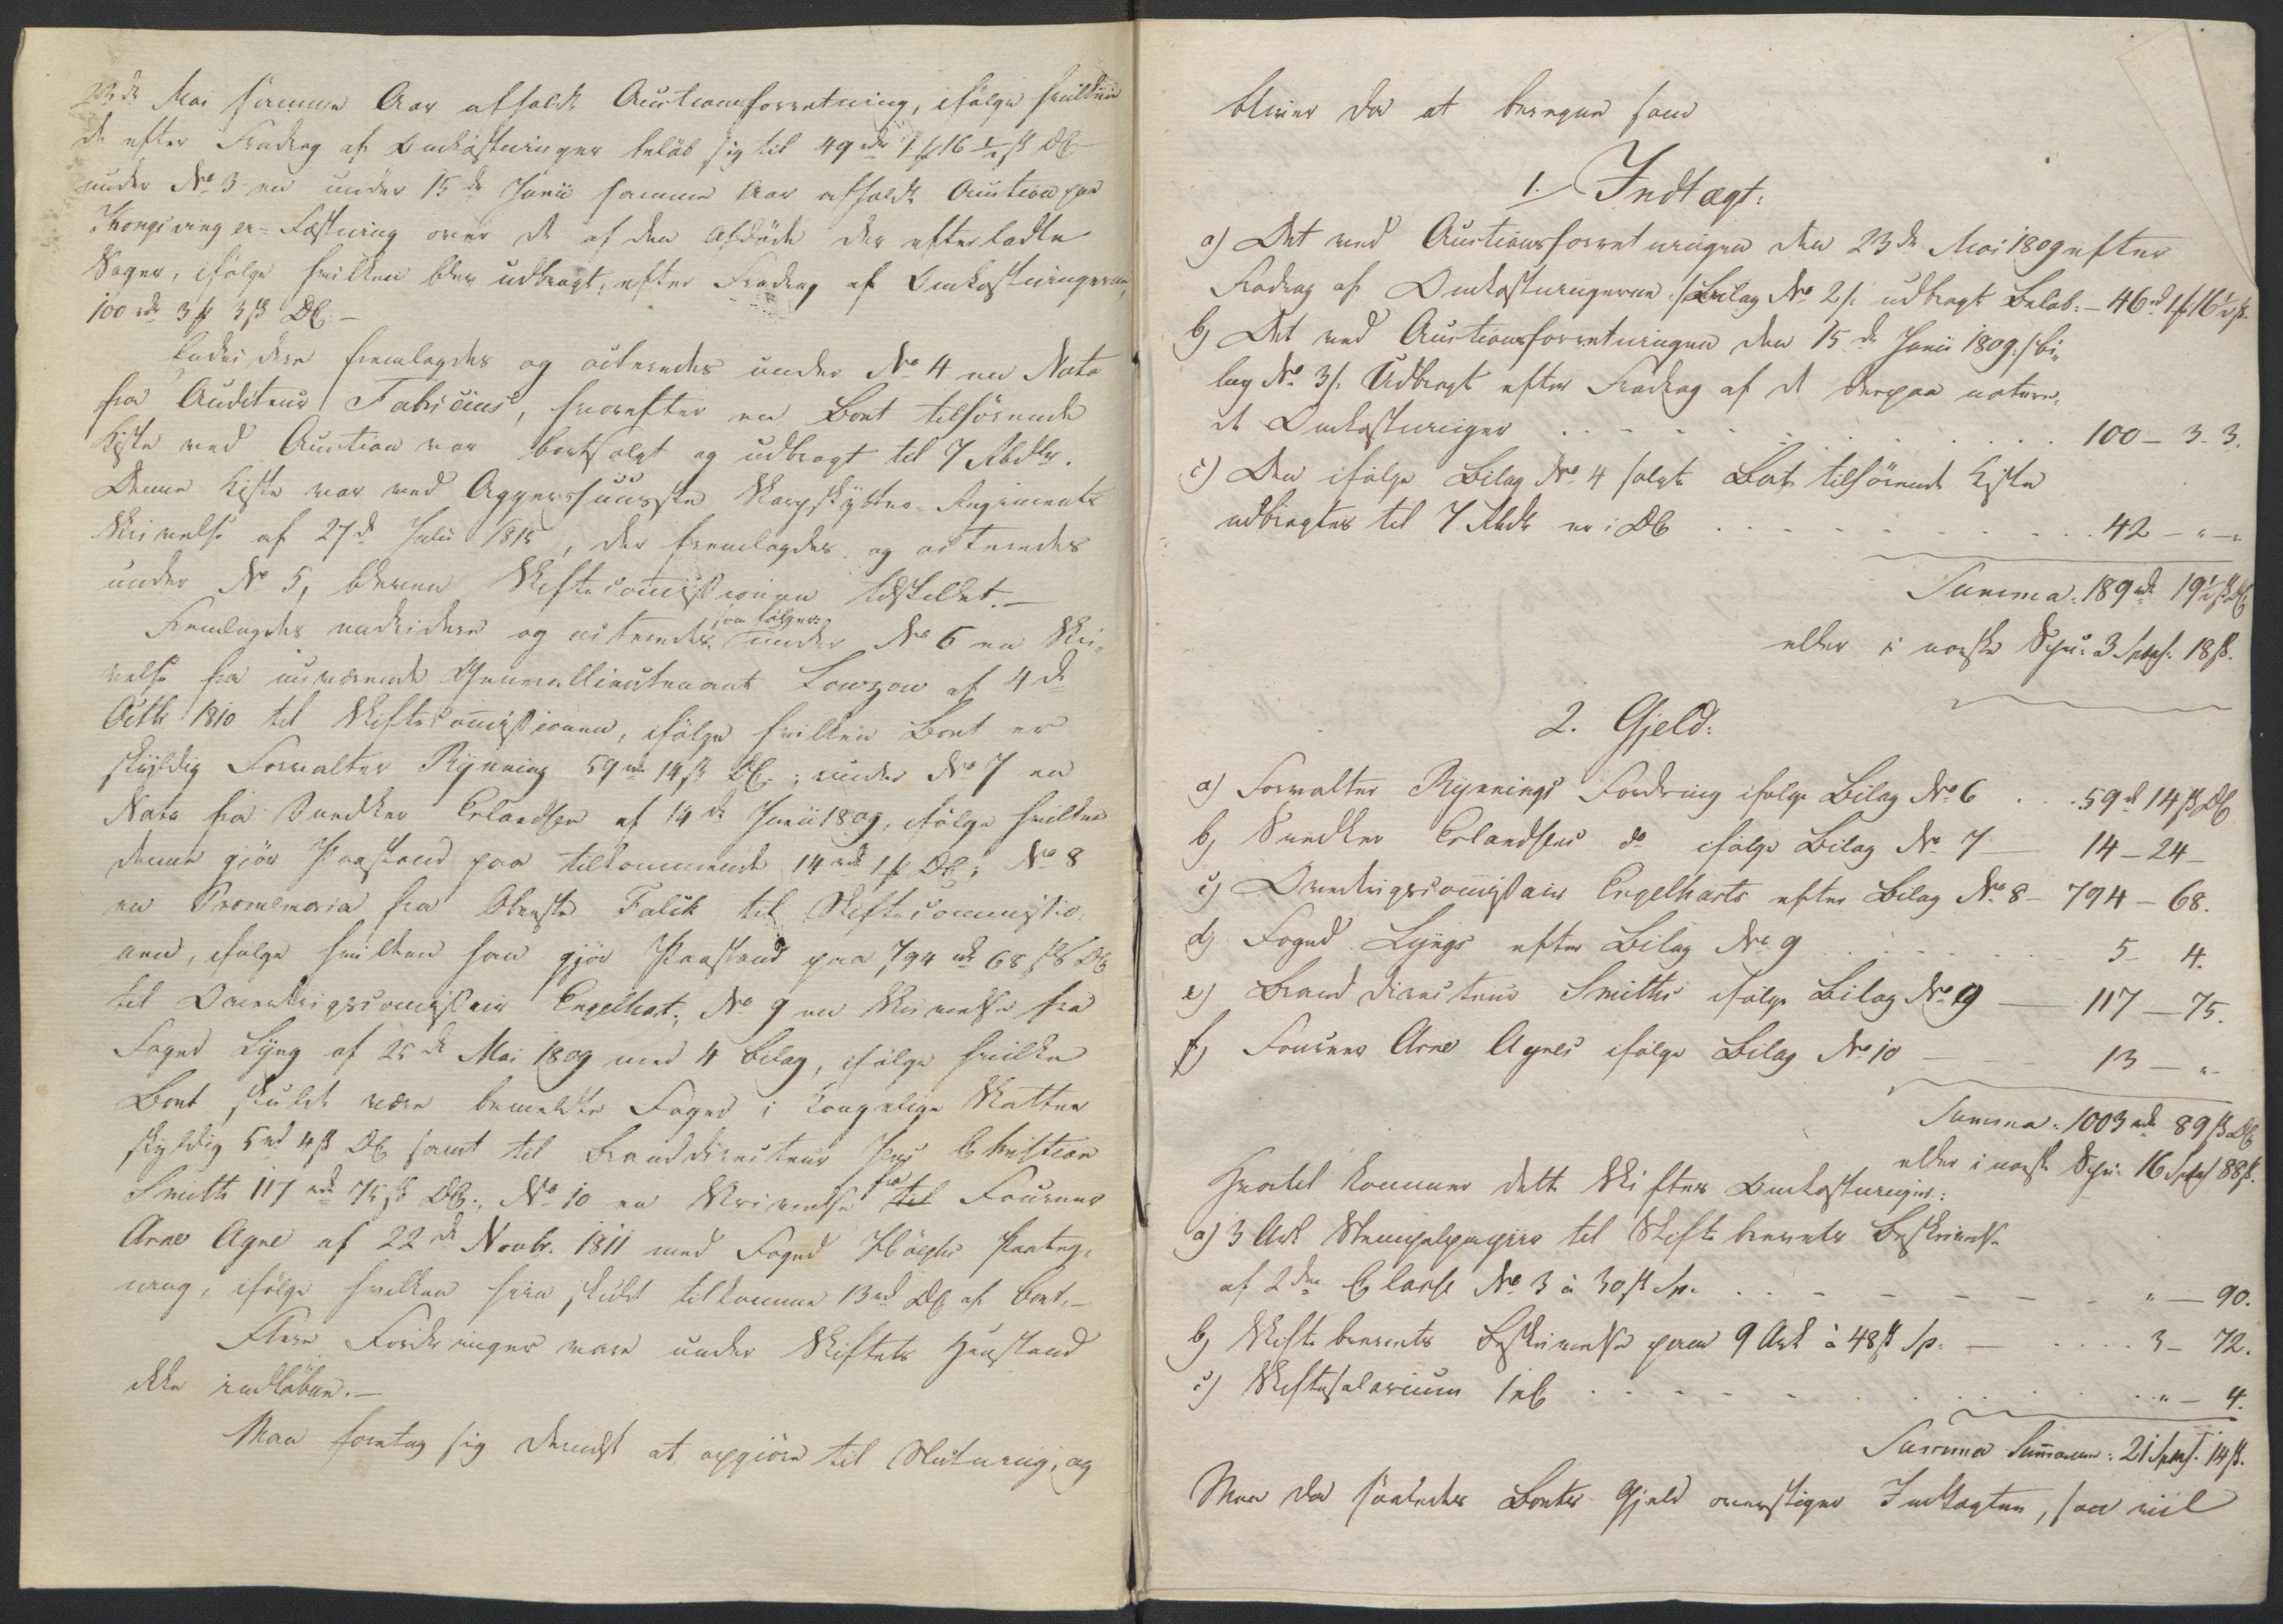 23de Mai samme Aar afholdt Auctionsforretning, ifølge hvilken
de efter Fradrag af Omkostninger beløb sig til 49 rdr 1 ℔ 16 ½ ß DC
under No 3 en under 15de Junii samme Aar afholdt Auction paa
Kongsvinger=Fæstning over de af den Afdöde der efterladte
Sager, ifølge hvilken blev udbragt, efter Fradrag af Omkostningerne,
100 rdr 3 ℔ 3 ß DC. —
Endvidere fremlagdes og acteredes under No 4 en Nota
fra Auditeur Fabricius, hvorefter en Bont tilhörende
Kiste ved Auction var bortsolgt og udbragt til 7 Rbdlr.
Denne Kiste var ved Aggershuusske Skarpskytter-Regiments
Skrivelse af 27de Julii 1815, der fremlagdes og acteredes
under No 5, bleven Skiftecommissionen tilstillet. —
Fremlagdes endvidere og acteredes som følger: under No 6 en Skri-
velse fra nuværende Generallieutenant Lowzow af 4de
Octbr 1810 til Skiftecommissionen, ifølge hvilken Bont er
skyldig Forvalter Rynning 59 rdr 14 ß DC.; under No 7 en
Nota fra Snedker Erlandsen af 14de Junii 1809, ifølge hvilken
denne gjör Paastand paa tilkommende 14 rdr 1 ℔ DC; No 8
en Promemoria fra Oberste Falck til Skiftecommissio-
nen, ifølge hvilken han gjör Paastand paa 794 rdr 68 ß DC
til Overkrigscommissair Engelhart; No 9 en Skrivelse fra
Foged Lyng af 25de Mai 1809 med 4 Bilag, ifølge hvilke
Bont skulde være bemeldte Foged i Kongelige Skatter
skyldig 5 rd 4 ß DC samt til Branddirecteur Jens Christian
Smith 117 rdr 75 ß DC.; No 10 en Skrivelse til fra Fourer
Arne Agne af 22de Novbr. 1811 med Foged Paateg-
ning, ifølge hvilken ham skulde tilkomme 13 rd DC af Bont. —
Flere Fordringer vare under Skiftets Henstand
ikke indløbne. —
Man foretog sig dernæst at opgjöre til Slutning, og
bliver da at beregne som
1. Indtægt:
a) Det ved Auctionsforretningen den 23de Mai 1809 efter
Fradrag af Omkostningerne /: Bilag No 2 /: udbragte Beløb. — 46 rd 1 ℔ 16 ½ ß.
b) Det ved Auctionsforretningen den 15de Junii 1809 /: bi-
lag No 3 /: Udbragte efter Fradrag af de derpaa notere-
de Omkostninger . . . 100 — 3 - 3.
c) Den ifølge Bilag No 4 solgte Bont tilhörende Kiste
udbragtes til 7 Rbdr er i DC . . . 42 — „ — „
Summa: 189 rdr 19 ½ ß DC
eller i norske Spec: 3 Spd. 18 ß.
2. Gjeld:
a) Forvalter Rynnings Fordring ifølge Bilag No 6 . . . 59 d 14 ß DC
b) Snedker Erlandsens do ifølge Bilag No 7 — 14 — 24 —
c) Overkrigscommissair Engelharts efter Bilag No 8 — 794 — 68.
d) Foged Lyngs efter Bilag No 9 . . . 5 — 4.
e) Branddirecteur Smiths ifølge Bilag No 9 — 117 — 75.
f) Fourer Arne Agnes ifølge Bilag No 10 — 13 — „ -
Summa: 1003 rdr 89 ß DC
eller i norsk Spec: 16 Spd 88 ß.
Hvortil kommer dette Skiftes Omkostninger:
a) 3 Ark Stempelpapir til Skiftebrevets Beskrivelse
af 2den Classe No 3 à 30 ß Sp. . . . „ — 90.
b) Skiftebrevets Beskrivelse paa 9 Ark à 48 ß Sp. — . . . 3 — 72.
c) Skiftesalarium . . . „ — 4.
Summa Summarum: 21 Spd. 14 ß.
Men da saaledes Bonts Gjeld overstiger Indtægten, saa vil